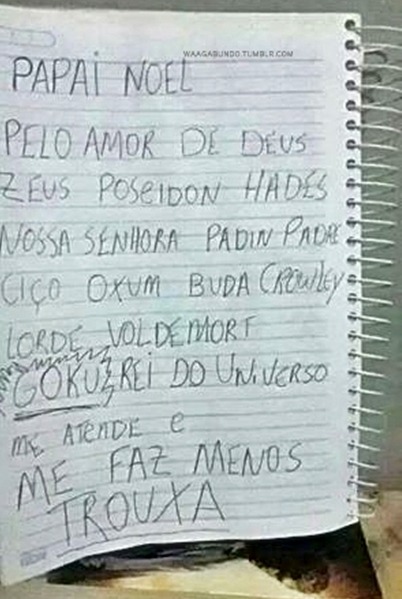 WAAGABUNDO.TUMBLR.COM
PAPAI NOEL
PELO AMOR DE DEUS
ZEUS POSEIDON HADES
NOSSA SENHORA PADIN PADRE
CIÇO OXUM BUDA CROWLEY
LORDE VOLDEMORT
GOKU REI DO UNIVERSO
ME ATENDE E
ME FAZ MENOS
TROUXA